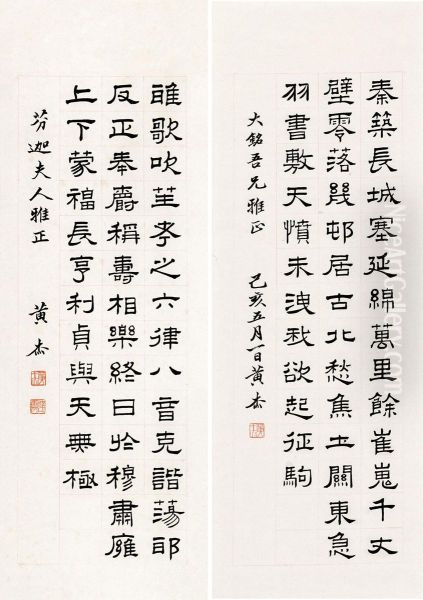 秦築長城塞延綿萬里餘崔嵬千丈
壁零落幾邨居古北愁焦土關東急
羽書敷天憤未洩我欲起征駒
大銘吾兄雅正 己亥五月一日黃杰
雅歌吹笙考之六律八音克諧蕩邪
反正奉爵稱壽相樂終日於穆肅廱
上下蒙福長亨利貞與天無極
芬迦夫人雅正 黃杰